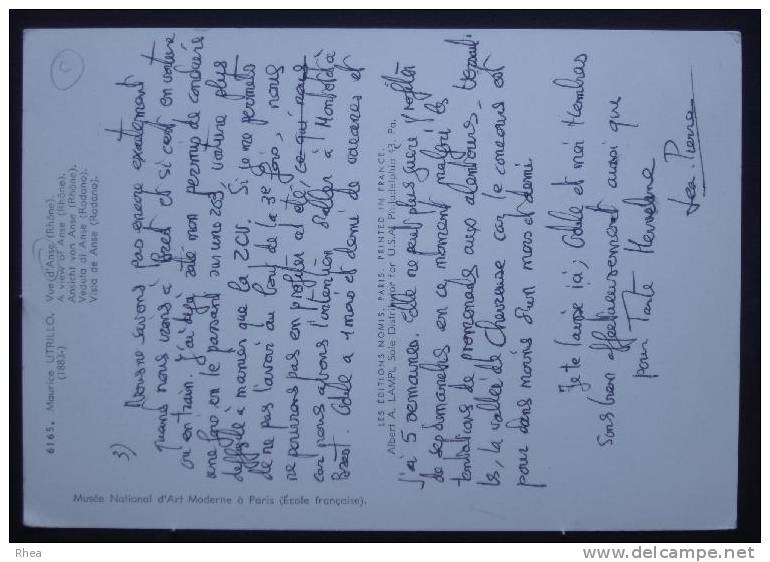 6165. Maurice UTRILLO. Vue d'Anse (Rhône).
(1883-) A view of Anse (Rhône).
Ansicht von Anse (Rhône).
Veduta di Anse (Rodano).
Vista de Anse (Rodano).
3) Nous ne savons pas encore exactement
quand nous irons à Brest et si c'est en voiture
ou en train. J'ai déjà raté mon permis de conduire
une fois en le passant sur une 203, voiture plus
difficile à manier que la 2CV. Si je me permets
de ne pas l'avoir au bout de la 3e fois, nous
ne pourrons pas en profiter cet été, ce qui nous
car nous avons l'intention d'aller à
Brest. Odile a 1 mois et demi de vacances et
LES ÉDITIONS NOMIS, PARIS. PRINTED IN FRANCE.
Albert A. LAMPL, Sole Distributor for U.S.A. Philadelphia 43, Pa.
j'ai 5 semaines. Odile ne peut plus guère profiter
de ses dimanches en ce moment malgré les
tentations de promenade aux alentours,
la vallée de Chevreuse car le concours est
pour dans moins d'un mois et demi
Je te laisse ici, Odile et moi t'embrassons
bien affectueusement aussi que
pour Tante
Jean-Pierre
Musée National d'Art Moderne à Paris (École française).
Rhea
www.delcampe.net